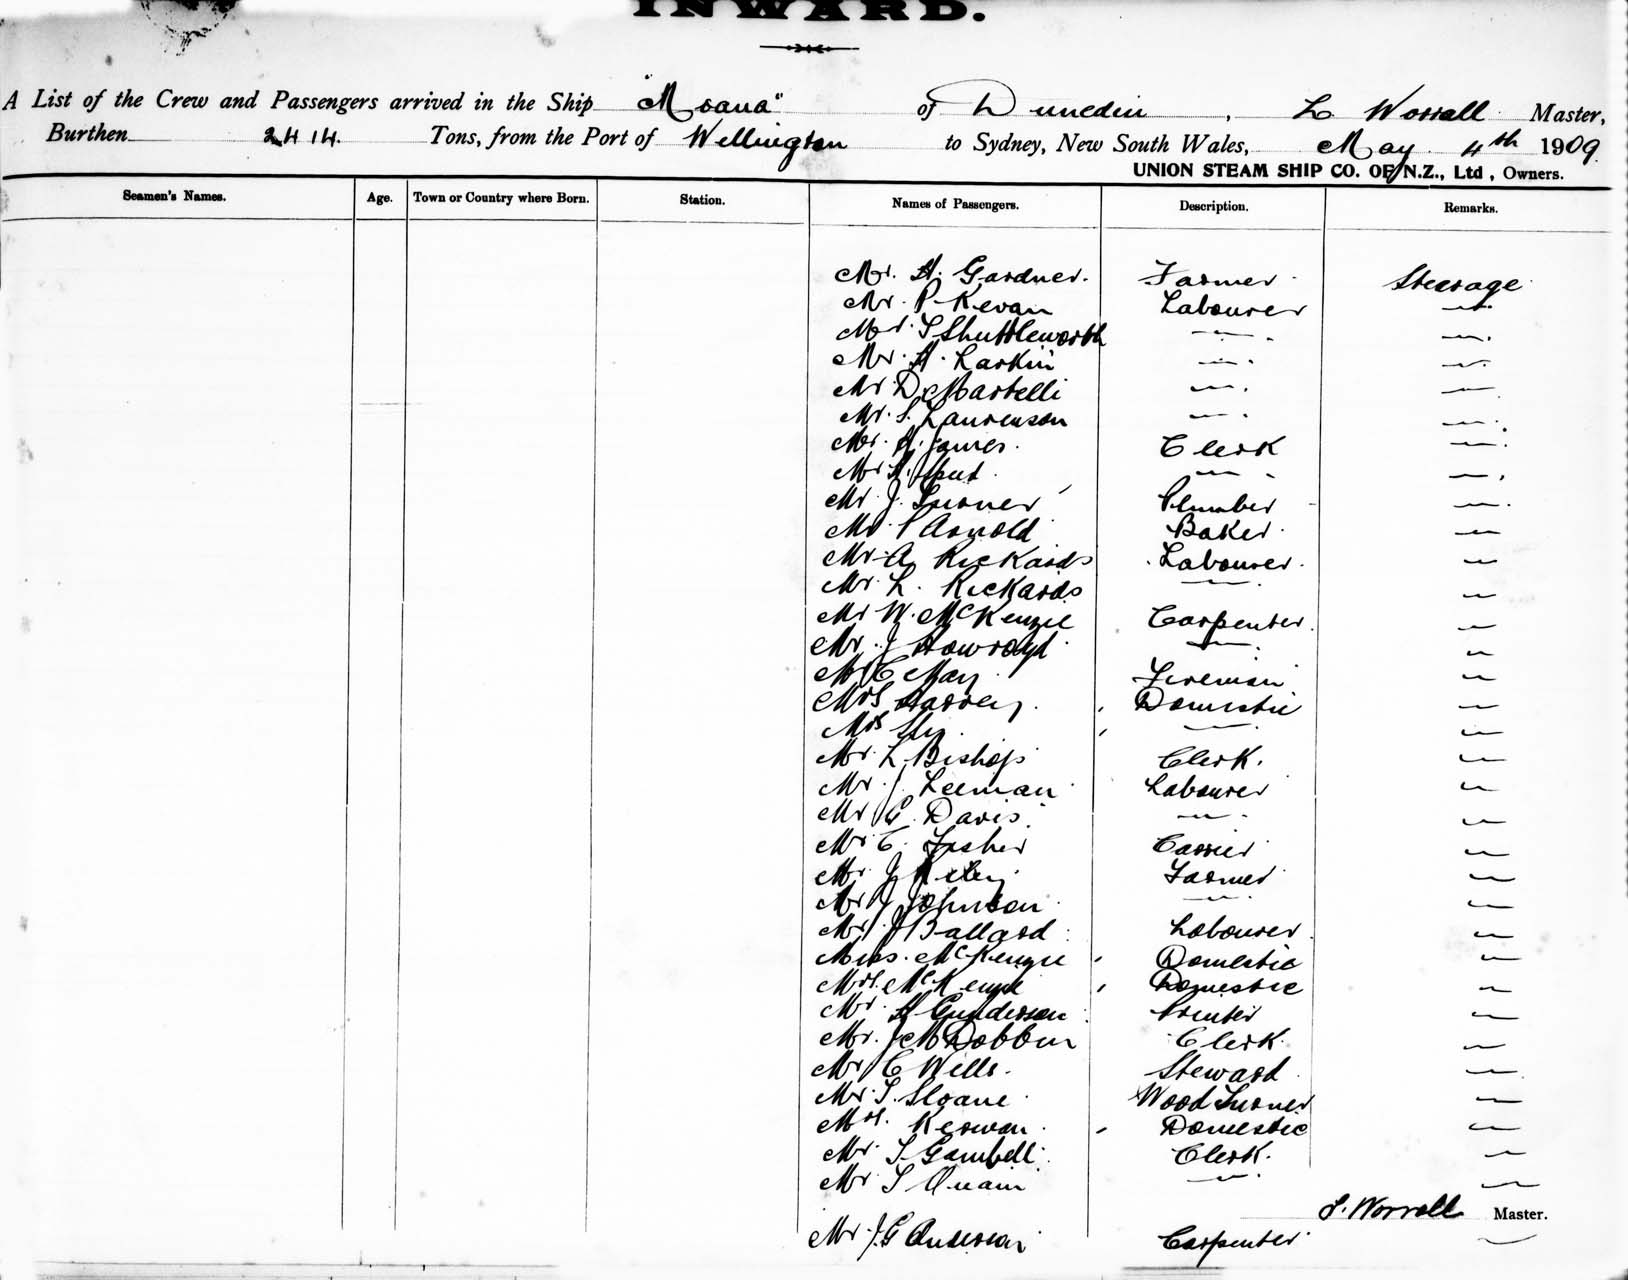 INWARD.
A List of the Crew and Passengers arrived in the Ship "Moana" of Dunedin, L Worrall Master,
Burthen 2414. Tons, from the Port of Wellington to Sydney, New South Wales, May 4th 1909.
UNION STEAM SHIP CO. OF N.Z., Ltd, Owners.
Seamen's Names. Age. Town or Country where Born. Station. Names of Passengers. Description. Remarks.
Mr. H. Gardner. Farmer Steerage
Mr. P. Kevan Labourer —
Mr. T Shuttleworth — —
Mr. H. Larkin — —
Mr D. Martelli — —
Mr. S. Laurenson — —
Mr. H. James. Clerk —
Mr H. — —
Mr J. Turner Plumber —
Mr. Arnold Baker —
Mr A Rickards Labourer —
Mr. L. Rickards — —
Mr W. McKenzie Carpenter —
Mr. J Howroyd — —
Mr C May Fireman —
Mrs Harvey Domestic —
Mrs — —
Mr. L. Bishop Clerk. —
Mr. J. Leeman Labourer —
Mr G. Davis. — —
Mr C. Fisher Carrier —
Mr. J Farmer —
Mr J Johnson — —
Mr J Ballard Labourer —
Miss. McKenzie Domestic —
Mrs. McKenzie Domestic —
Mr. H Gunderson Printer —
Mr. J McDobbin Clerk —
Mr C Wells. Steward —
Mr. T. Sloane Wood Turner —
Mrs. Kerwan Domestic —
Mr. T Gambell Clerk. —
Mr T Quain — —
L. Worrall Master.
Mr. J.G Anderson Carpenter —